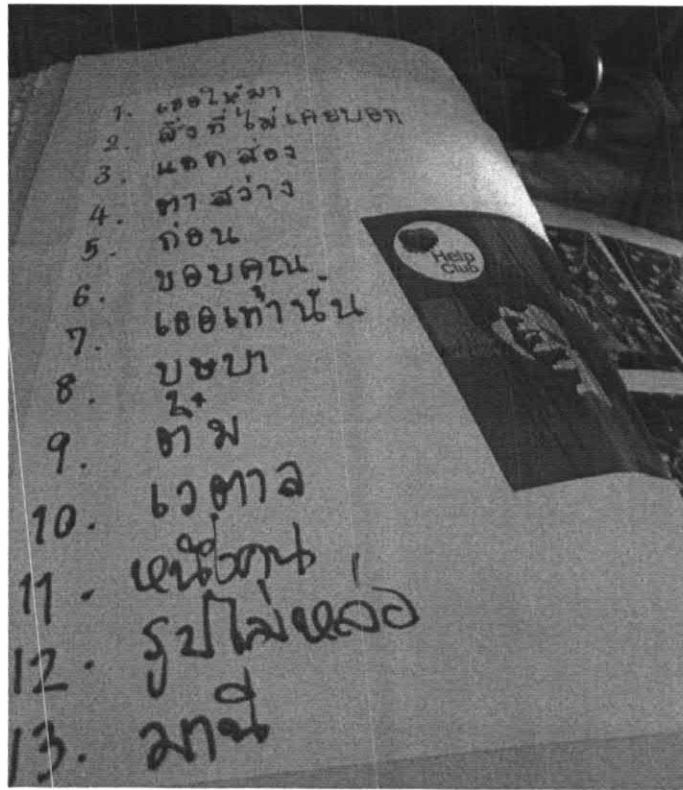 1. เธอให้มา
2. สิ่งที่ไม่เคยบอก
3. แอดส่อง
4. ตาสว่าง
5. ก่อน
6. ขอบคุณ
7. เธอเท่านั้น
8. บุษบา
9. ติ๋ม
10. เวตาล
11. หนึ่งคน
12. รูปไม่หล่อ
13. มานี
Help
Club